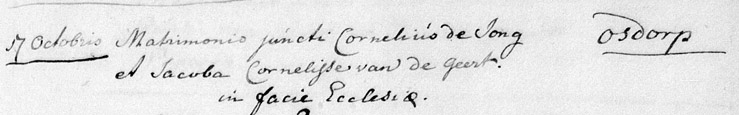 17 Octobris Matrimonio juncti Cornelius de Jong Osdorp
et Jacoba Cornelisse van de Geert.
in facie Ecclesiæ.